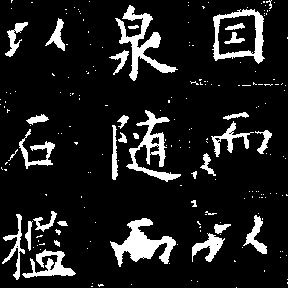 因而以
泉随而
以石檻